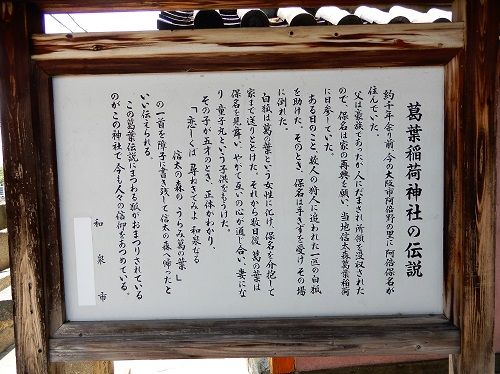 葛葉稲荷神社の伝説
約千年余り前、今の大阪市阿倍野の里に阿倍保名が
住んでいた。
父は豪族であったが人にだまされ所領を没収された
ので、保名は家の再興を願い、当地信太森葛葉稲荷
に日参していた。
ある日のこと、数人の狩人に追われた一匹の白狐
を助けた。そのとき、保名は手きずを受け、その場
に倒れた。
白狐は葛の葉という女性に化け、保名を介抱して
家まで送りとどけた。それから数日後、葛の葉は
保名を見舞い、やがて互いの心が通じ合い、妻にな
り、童子丸という子供をもうけた。
その子が五才のとき、正体がわかり、
「恋しくば 尋ねきてみよ 和泉なる
信太の森の うらみ葛の葉」
の一首を障子に書き残して信太の森へ帰ったと
いい伝えられる。
この葛葉伝説にまつわる狐がおまつりされている
のがこの神社で、今も人々の信仰をあつめている。
和泉市